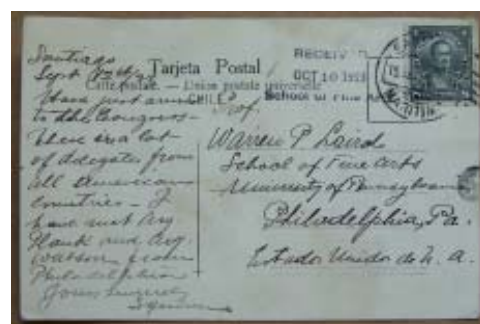 Tarjeta Postal
Carte postale. — Union postale universelle.
CHILE
RECEIVED
OCT 10 1923
School of Fine Arts
Santiago
Sept
Have just
to the Congress—
There is a lot
of delegates from
all American
countries — I
have met Arq
and Arq.
Watson from
Philadelphia
Yours sincerely
Prof.
Warren P Laird
School of Fine Arts
University of Pennsylvania
Philadelphia, Pa.
Estados Unidos de N. A.